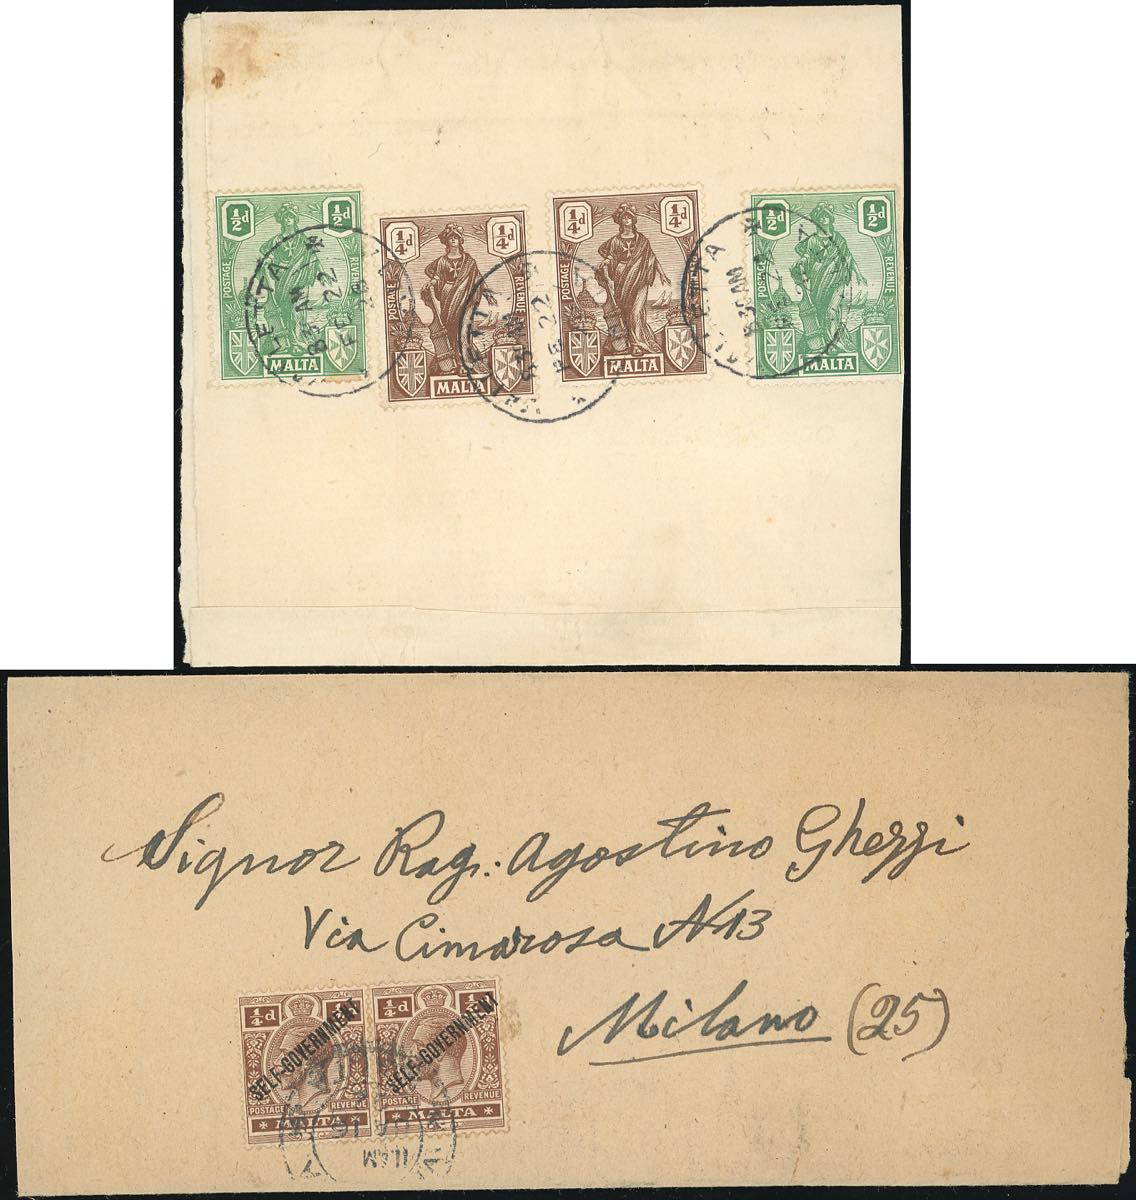 ½ ½d
POSTAGE
REVENUE
MALTA
¼ ¼d
POSTAGE
REVENUE
MALTA
¼ ¼d
POSTAGE
REVENUE
MALTA
½ ½d
POSTAGE
REVENUE
MALTA
LETTA
AM
FE 22
ETTA
FE 22
LETTA
AM
Signor Rag. Agostino Ghezzi
Via Cimarosa N 13
Milano (25)
¼d
SELF-GOVERNMENT
POSTAGE REVENUE
MALTA
¼d ¼
SELF-GOVERNMENT
POSTAGE REVENUE
MALTA
11 AM